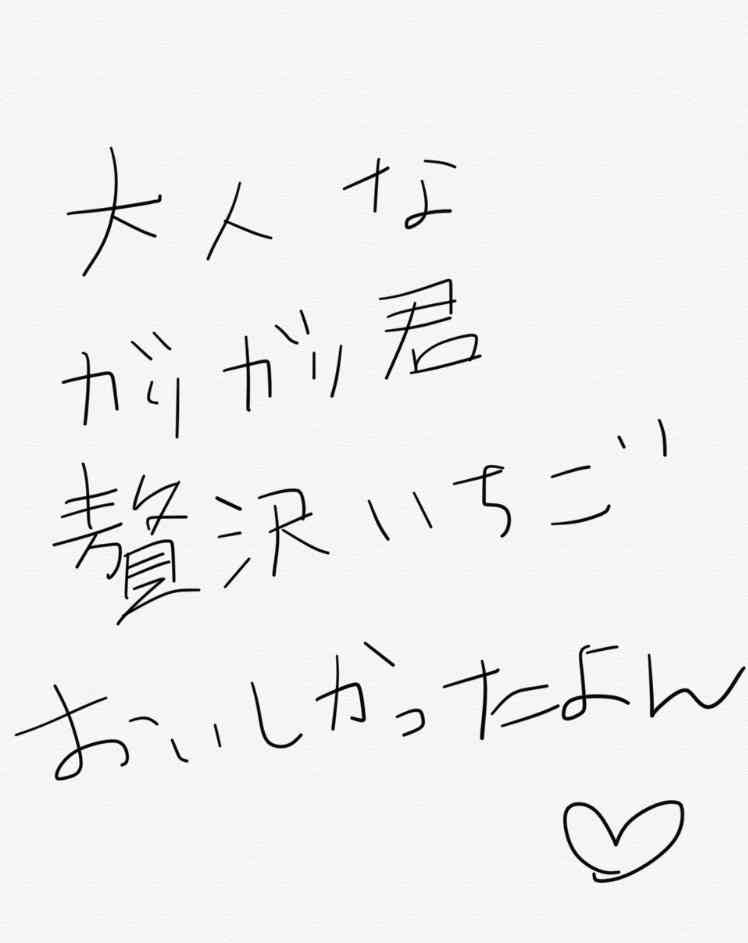 大人な
ガリガリ君
贅沢いちご
おいしかったよん
♡